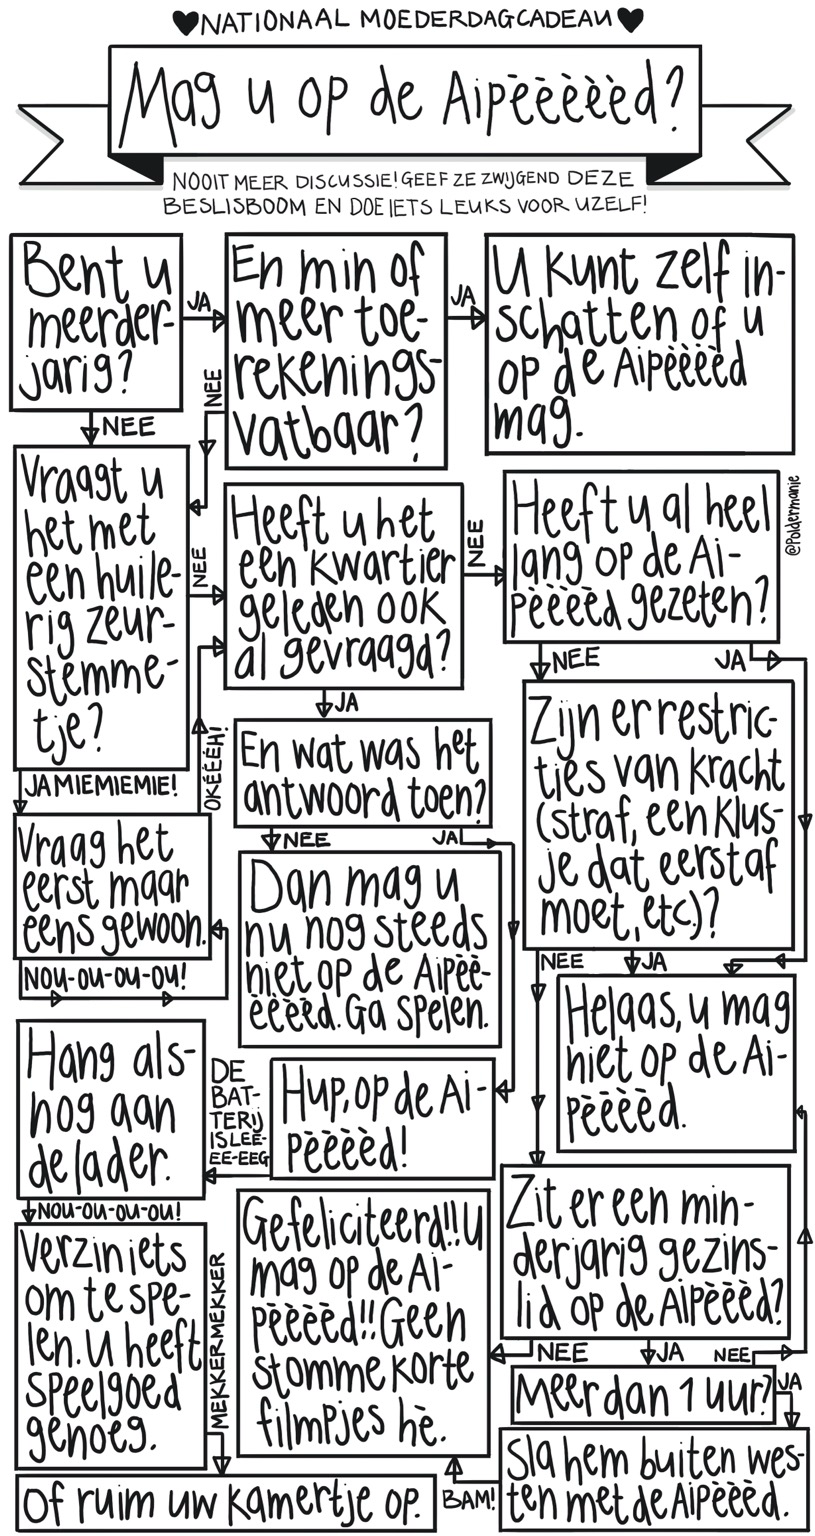 ♥NATIONAAL MOEDERDAGCADEAU♥
Mag u op de Aipèèèèèd?
NOOIT MEER DISCUSSIE! GEEF ZE ZWIJGEND DEZE
BESLISBOOM EN DOE IETS LEUKS VOOR UZELF!
Bent u
meerder-
jarig?
JA
NEE
En min of
meer toe-
rekenings-
vatbaar?
JA
NEE
U kunt zelf in-
schatten of u
op de Aipèèèèd
mag.
Vraagt u
het met
een huile-
rig zeur-
stemme-
tje?
NEE
JAMIEMIEMIE!
Heeft u het
een kwartier
geleden ook
al gevraagd?
NEE
JA
Heeft u al heel
lang op de Ai-
pèèèèd gezeten?
NEE
JA
@Poldermanie
Zijn er restric-
ties van kracht
(straf, een klus-
je dat eerst af
moet, etc.)?
NEE
JA
En wat was het
antwoord toen?
NEE
JA
OKÉÉÉH!
Vraag het
eerst maar
eens gewoon.
NOU-OU-OU-OU!
Dan mag u
nu nog steeds
niet op de Aipèè-
èèèèd. Ga spelen.
Helaas, u mag
niet op de Ai-
pèèèèd.
Hang als-
nog aan
de lader.
DE
BAT-
TERIJ
IS LEE-
EE-EEG
Hup, op de Ai-
pèèèèd!
NOU-OU-OU-OU!
Verzin iets
om te spe-
len. U heeft
speelgoed
genoeg.
MEKKERMEKKER
Gefeliciteerd!! U
mag op de Ai-
pèèèèd!! Geen
stomme korte
filmpjes hè.
Zit er een min-
derjarig gezins-
lid op de Aipèèèd?
NEE
JA
NEE
Meer dan 1 uur?
JA
Sla hem buiten wes-
ten met de Aipèèèd.
BAM!
Of ruim uw kamertje op.